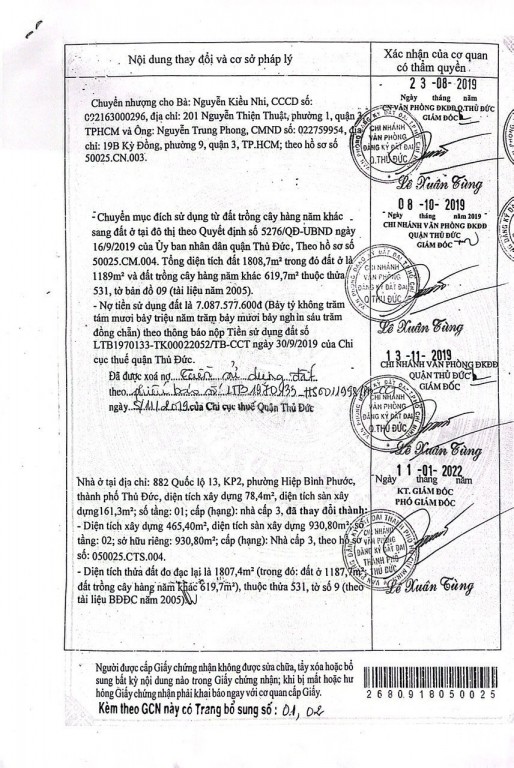 Nội dung thay đổi và cơ sở pháp lý
Xác nhận của cơ quan
có thẩm quyền
Chuyển nhượng cho Bà: Nguyễn Kiều Nhi, CCCD số:
092163000296, địa chỉ: 201 Nguyễn Thiện Thuật, phường 1, quận 3,
TPHCM và Ông: Nguyễn Trung Phong, CMND số: 022759954, địa
chỉ: 19B Kỳ Đồng, phường 9, quận 3, TP.HCM; theo hồ sơ số
50025.CN.003.
23-08-2019
Ngày tháng năm
CN VĂN PHÒNG ĐKĐĐ Q.THỦ ĐỨC
GIÁM ĐỐC
CHI NHÁNH
VĂN PHÒNG
ĐĂNG KÝ ĐẤT ĐAI
Q.THỦ ĐỨC
Lê Xuân Tùng
Chuyển mục đích sử dụng từ đất trồng cây hàng năm khác
sang đất ở tại đô thị theo Quyết định số 5276/QĐ-UBND ngày
16/9/2019 của Ủy ban nhân dân quận Thủ Đức, Theo hồ sơ số
50025.CM.004. Tổng diện tích đất 1808,7m² trong đó đất ở là
1189m² và đất trồng cây hàng năm khác 619,7m² thuộc thửa
531, tờ bản đồ 09 (tài liệu năm 2005).
- Nợ tiền sử dụng đất là 7.087.577.600đ (Bảy tỷ không trăm
tám mươi bảy triệu năm trăm bảy mươi bảy nghìn sáu trăm
đồng chẵn) theo thông báo nộp Tiền sử dụng đất số
LTB1970133-TK00022052/TB-CCT ngày 30/9/2019 của Chi
cục thuế quận Thủ Đức.
08-10-2019
Ngày tháng năm 2019
CHI NHÁNH VĂN PHÒNG ĐKĐĐ
QUẬN THỦ ĐỨC
GIÁM ĐỐC
CHI NHÁNH
VĂN PHÒNG
ĐĂNG KÝ ĐẤT ĐAI
Q.THỦ ĐỨC
Lê Xuân Tùng
Đã được xoá nợ tiền sử dụng đất
theo
ngày 5/11/2019 của Chi cục thuế Quận Thủ Đức
13-11-2019
CHI NHÁNH VĂN PHÒNG ĐKĐĐ
QUẬN THỦ ĐỨC
GIÁM ĐỐC
CHI NHÁNH
VĂN PHÒNG
ĐĂNG KÝ ĐẤT ĐAI
Q.THỦ ĐỨC
Lê Xuân Tùng
Nhà ở tại địa chỉ: 882 Quốc lộ 13, KP2, phường Hiệp Bình Phước,
thành phố Thủ Đức, diện tích xây dựng 78,4m², diện tích sàn xây
dựng161,3m²; số tầng: 01; cấp (hạng): nhà cấp 3, đã thay đổi thành:
- Diện tích xây dựng 465,40m², diện tích sàn xây dựng 930,80m²; số
tầng: 02; sở hữu riêng: 930,80m²; cấp (hạng): Nhà cấp 3, theo hồ sơ
số: 050025.CTS.004.
- Diện tích thửa đất đo đạc lại là 1807,4m² (trong đó: đất ở 1187,7m²,
đất trồng cây hàng năm khác 619,7m²), thuộc thửa 531, tờ số 9 (theo
tài liệu BĐĐC năm 2005)
11-01-2022
Ngày tháng năm
KT. GIÁM ĐỐC
PHÓ GIÁM ĐỐC
CHI NHÁNH
VĂN PHÒNG
ĐĂNG KÝ ĐẤT ĐAI
THÀNH PHỐ
THỦ ĐỨC
Lê Xuân Tùng
Người được cấp Giấy chứng nhận không được sửa chữa, tẩy xóa hoặc bổ
sung bất kỳ nội dung nào trong Giấy chứng nhận; khi bị mất hoặc hư
hỏng Giấy chứng nhận phải khai báo ngay với cơ quan cấp Giấy.
2680918050025
Kèm theo GCN này có Trang bổ sung số: 01, 02